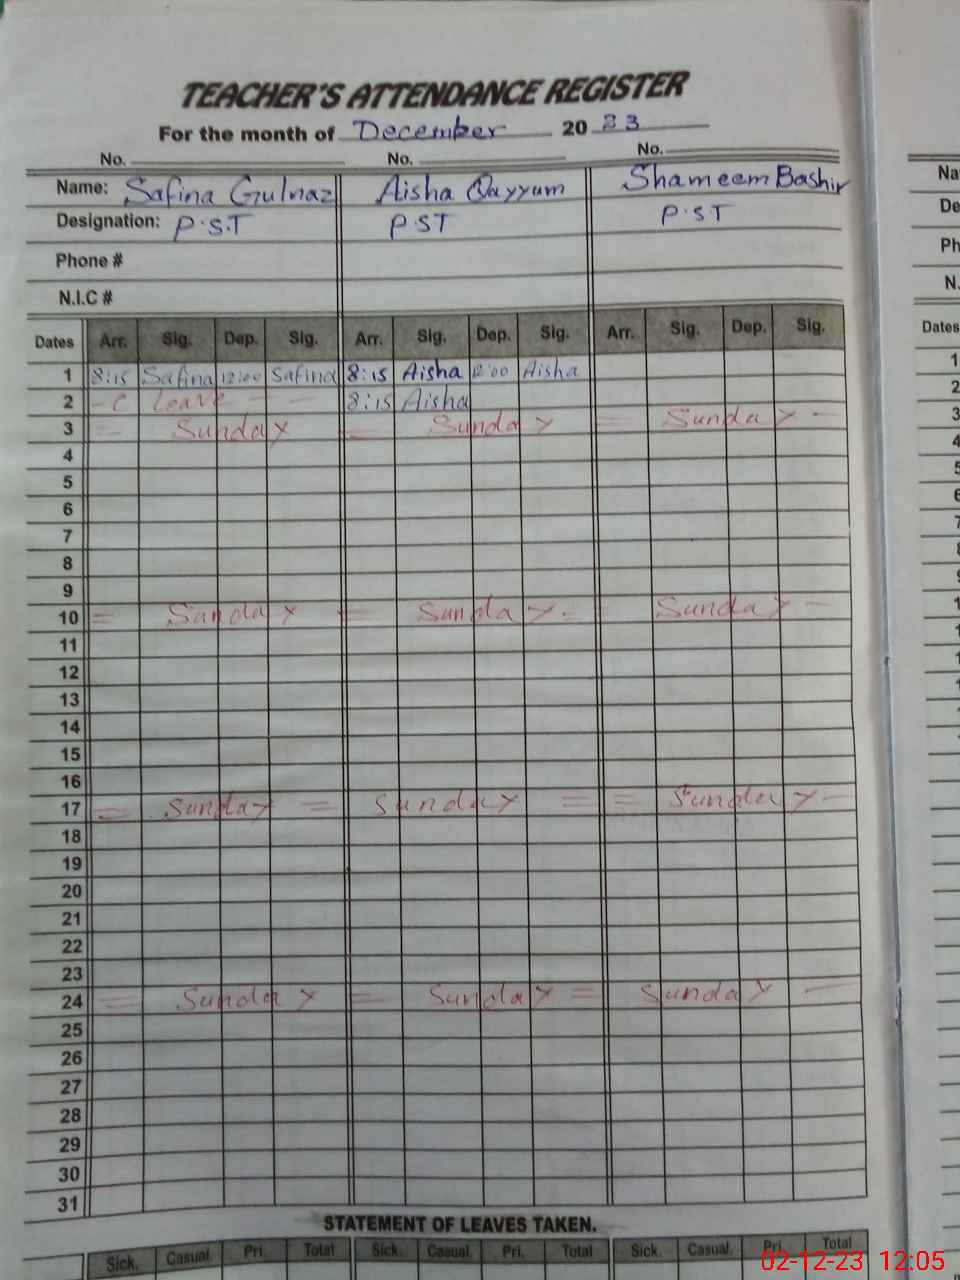 TEACHER'S ATTENDANCE REGISTER
For the month of December 20 23
No. No. No.
Name: Safina Gulnaz Aisha Qayyum Shameem Bashir
Designation: P.S.T P.ST P.S.T
Phone #
N.I.C #
Dates Arr. Sig. Dep. Sig. Arr. Sig. Dep. Sig. Arr. Sig. Dep. Sig.
1 8:15 Safina 12:00 Safina 8:15 Aisha 12:00 Aisha
2 - C Leave - - 8:15 Aisha
3 = Sunday = Sunday = Sunday -
4
5
6
7
8
9
10 = Sunday = Sunday - = Sunday -
11
12
13
14
15
16
17 = Sunday = Sunday = = Sunday -
18
19
20
21
22
23
24 = Sunday = Sunday = Sunday -
25
26
27
28
29
30
31
STATEMENT OF LEAVES TAKEN.
Sick. Casual. Pri. Total Sick. Casual. Pri. Total Sick. Casual. Pri. Total
02-12-23 12:05
Na
De
Ph
N.
Dates
1
2
3
4
5
6
7